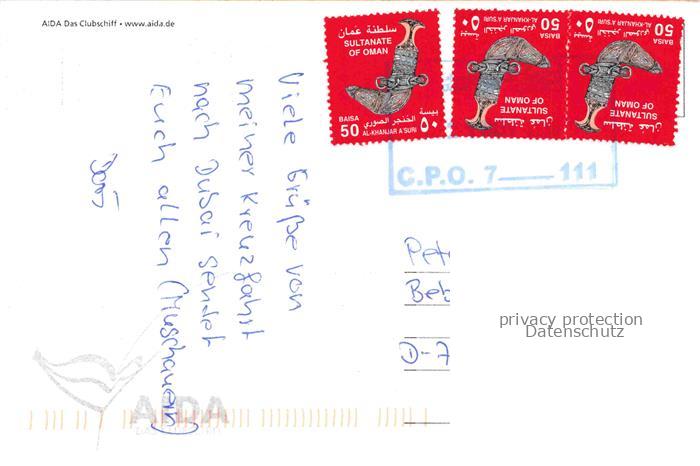 AIDA Das Clubschiff • www.aida.de
سلطنة عمان
SULTANATE OF OMAN
BAISA 50
بيسة ٥٠
الخنجر الصوري
AL-KHANJAR A'SURI
سلطنة عمان
SULTANATE OF OMAN
BAISA 50
بيسة ٥٠
الخنجر الصوري
AL-KHANJAR A'SURI
سلطنة عمان
SULTANATE OF OMAN
BAISA 50
بيسة ٥٠
الخنجر الصوري
AL-KHANJAR A'SURI
C.P.O. 7 111
Viele Grüße von
meiner Kreuzfahrt
nach Dubai sendet
Euch allen (Muschauern)
Pet
Bek
D-7
privacy protection
Datenschutz
AIDA